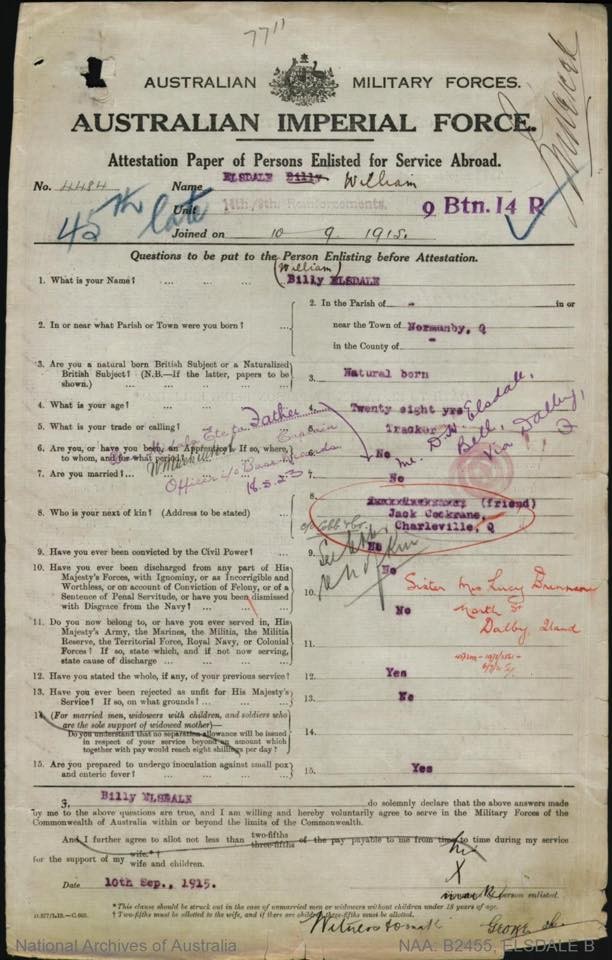 77"
AUSTRALIAN MILITARY FORCES.
AUSTRALIAN IMPERIAL FORCE.
Attestation Paper of Persons Enlisted for Service Abroad.
No. 4484 Name ELSDALE Billy William
Unit 14th/9th. Reinforcements. 9 Btn. 14 R
45th late
Joined on 10 9 1915.
Questions to be put to the Person Enlisting before Attestation.
(William)
1. What is your Name? ... ... ... Billy ELSDALE
2. In or near what Parish or Town were you born? ...
2. In the Parish of - in or
near the Town of Normanby, Q
in the County of -
3. Are you a natural born British Subject or a Naturalized
British Subject? (N.B.—If the latter, papers to be
shown.) 3. Natural born
4. What is your age? 4. Twenty eight yrs
5. What is your trade or calling? 5. Tracker
Father
Mr D.W. Elsdale,
Bell,
Via Dalby,
Q
6. Are you, or have you been, an Apprentice? If so, where,
to whom, and for what period? 6. No
7. Are you married? 7. No
Captain
Officer i/c Base Records
18.5.23
8. Who is your next of kin? (Address to be stated) 8. (friend)
Jack Cockrane,
c/o Cobb & Co. Charleville, Q
9. Have you ever been convicted by the Civil Power? 9. No
10. Have you ever been discharged from any part of His
Majesty's Forces, with Ignominy, or as Incorrigible and
Worthless, or on account of Conviction of Felony, or of a
Sentence of Penal Servitude, or have you been dismissed
with Disgrace from the Navy? ... ... 10. No
Sister Mrs Lucy
North St
Dalby Qland
11. Do you now belong to, or have you ever served in, His
Majesty's Army, the Marines, the Militia, the Militia
Reserve, the Territorial Force, Royal Navy, or Colonial
Forces? If so, state which, and if not now serving,
state cause of discharge ... ... 11. No
12. Have you stated the whole, if any, of your previous service? 12. Yes
13. Have you ever been rejected as unfit for His Majesty's
Service? If so, on what grounds? ... 13. No
14. (For married men, widowers with children, and soldiers who
are the sole support of widowed mother)—
Do you understand that no separation allowance will be issued
in respect of your service beyond an amount which
together with pay would reach eight shillings per day? 14.
15. Are you prepared to undergo inoculation against small pox
and enteric fever? 15. Yes
I, Billy ELSDALE do solemnly declare that the above answers made
by me to the above questions are true, and I am willing and hereby voluntarily agree to serve in the Military Forces of the
Commonwealth of Australia within or beyond the limits of the Commonwealth.
And I further agree to allot not less than two-fifths three-fifths of the pay payable to me from time to time during my service
for the support of my wife.*† wife and children.
his
X
mark
Date 10th Sep., 1915. person enlisted.
*This clause should be struck out in the case of unmarried men or widowers without children under 18 years of age.
† Two-fifths must be allotted to the wife, and if there are children three-fifths must be allotted.
Witness to mark George
National Archives of Australia NAA: B2455, ELSDALE B